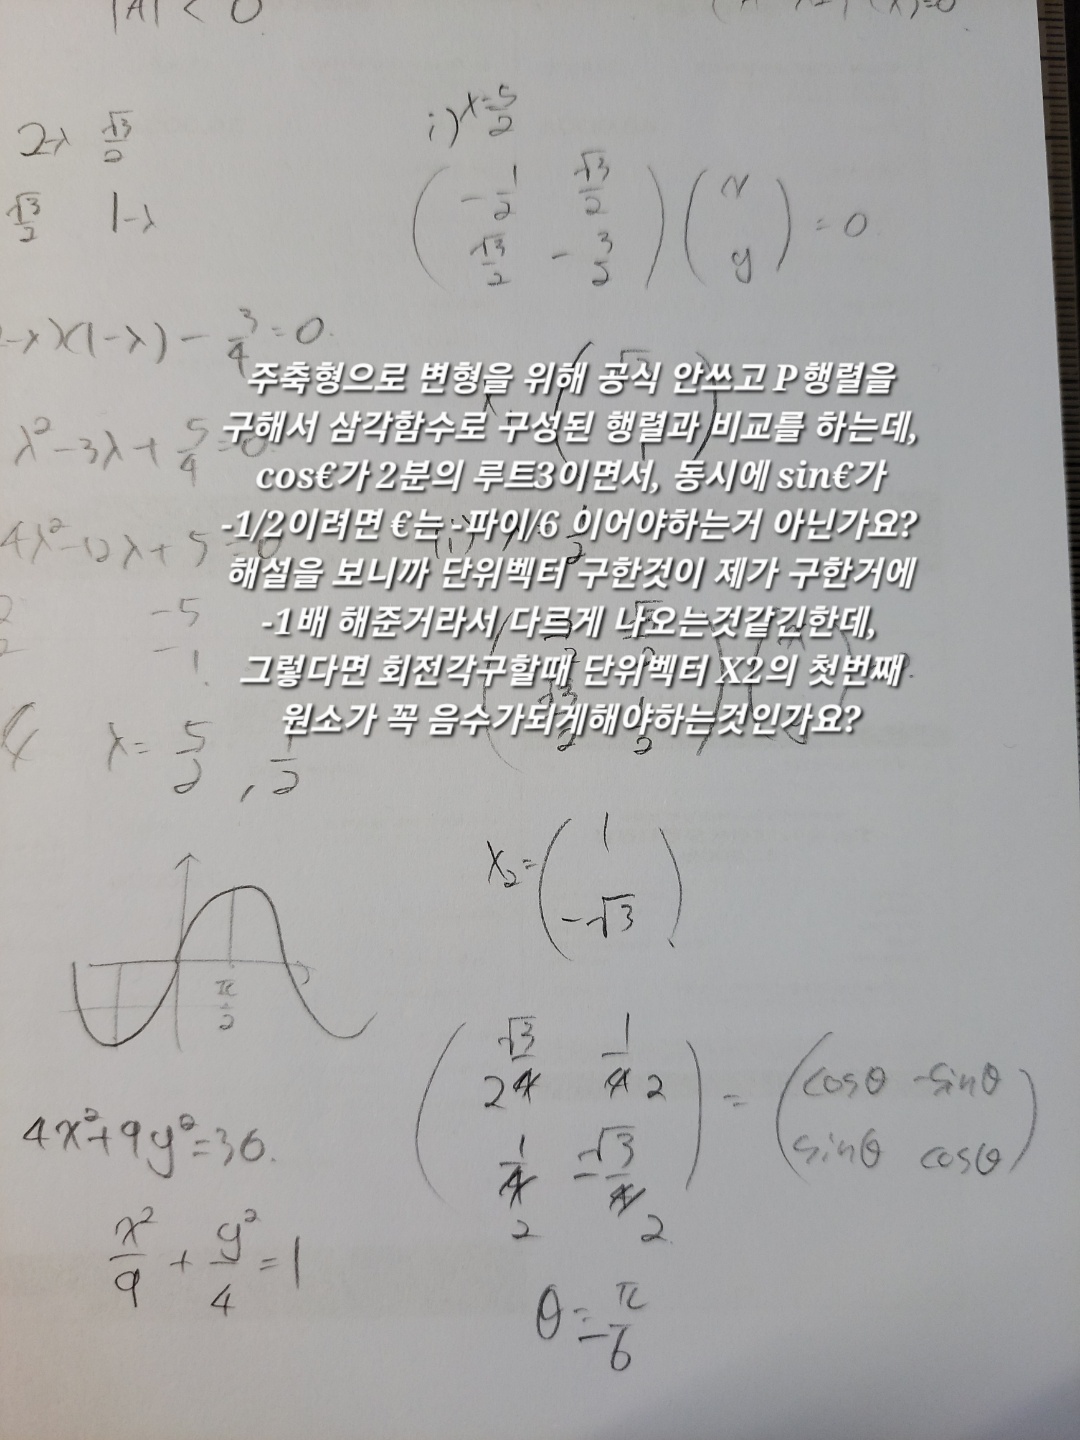 |A| < 0
2-λ √3/2
√3/2 1-λ
i) λ=5/2
(-1/2 √3/2
√3/2 -3/2) (x
y) = 0
-λ)(1-λ) - 3/4 = 0.
λ²-3λ+5/4=0
4λ²-12λ+5=0
주축형으로 변형을 위해 공식 안쓰고 P행렬을
구해서 삼각함수로 구성된 행렬과 비교를 하는데,
cos€가 2분의 루트3이면서, 동시에 sin€가
-1/2이려면 €는 -파이/6 이어야하는거 아닌가요?
해설을 보니까 단위벡터 구한것이 제가 구한거에
-1배 해준거라서 다르게 나오는것같긴한데,
그렇다면 회전각구할때 단위벡터 X2의 첫번째
원소가 꼭 음수가되게해야하는것인가요?
-5
-1
λ= 5/2, 1/2
X₂= (1
-√3)
π/2
(√3/2 1/2
1/2 -√3/2) = (cosθ -sinθ
sinθ cosθ)
4x²+9y²=36.
x²/9 + y²/4 = 1
θ=-π/6